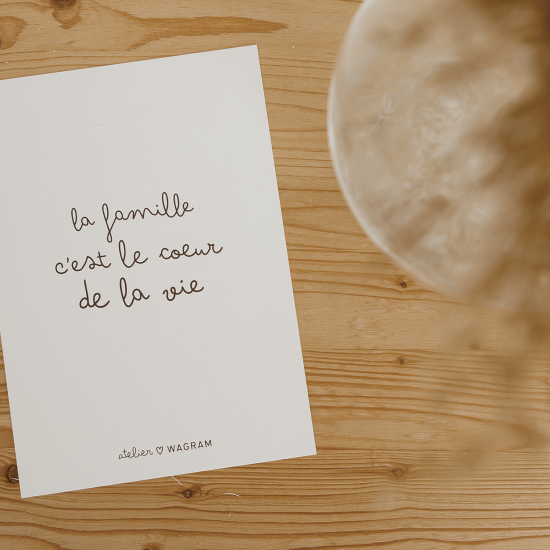 la famille
c'est le coeur
de la vie
atelier ♡ WAGRAM